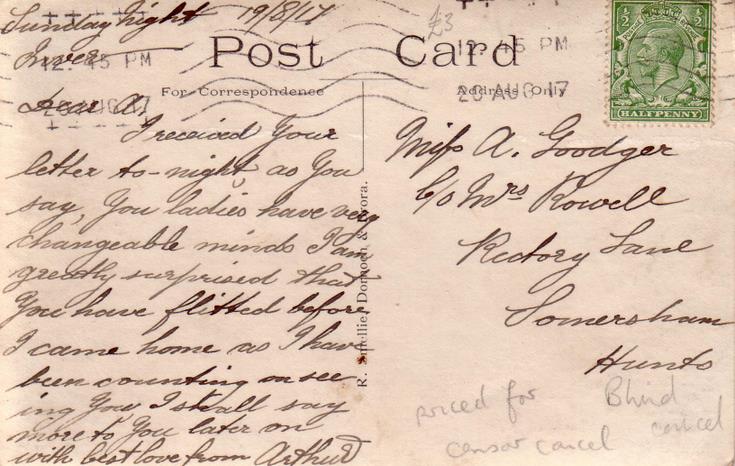 Sunday night 19/8/17
Post Card
£3
12. 45 PM
20 AUG 17
12. 45 PM
20 AUG 17
½ ½
HALFPENNY
For Correspondence
Address Only
Dear A,
I received Your
letter to-night, as You
say, You ladies have very
changeable minds I am
greatly surprised that
You have flitted before
I came home as I have
been counting on see
ing You, I shall say
more to You later on
with best love from Arthur
R. Smellie,
Miss A. Goodger
c/o Mrs Rowell
Rectory Lane
Somersham
Hunts
priced for
censor cancel
Blind
cancel